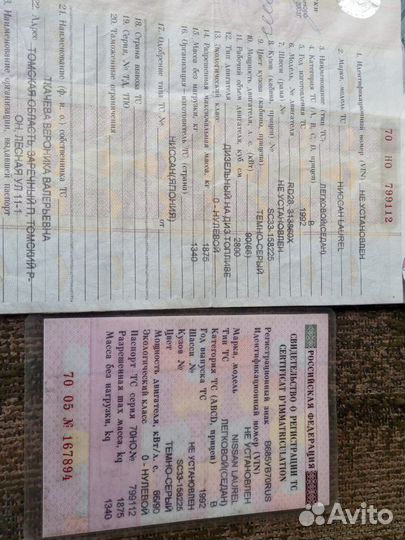 70 НО 799112
1. Идентификационный номер (VIN) НЕ УСТАНОВЛЕН
2. Марка, модель ТС НИССАН LAUREL
3. Наименование (тип ТС) ЛЕГКОВОЙ(СЕДАН)
4. Категория ТС (А, В, С, D, прицеп) В
5. Год изготовления ТС 1992
6. Модель, № двигателя RD28-313860X
7. Шасси (рама) № НЕ УСТАНОВЛЕН
8. Кузов (кабина, прицеп) № SC33-158225
9. Цвет кузова (кабины, прицепа) ТЕМНО-СЕРЫЙ
10. Мощность двигателя, л. с. (кВт) 90(66)
11. Рабочий объем двигателя, куб. см 2800
12. Тип двигателя ДИЗЕЛЬНЫЙ НА ДИЗ.ТОПЛИВЕ
13. Экологический класс 0-НУЛЕВОЙ
14. Разрешенная максимальная масса, кг 1875
15. Масса без нагрузки, кг 1340
16. Организация - изготовитель ТС (страна) НИССАН(ЯПОНИЯ)
17. Одобрение типа ТС № от
18. Страна вывоза ТС
19. Серия, № ТД, ТПО
20. Таможенные ограничения
21. Наименование (ф. и. о.) собственника ТС
ТКАЧЕВА ВЕРОНИКА ВАЛЕРЬЕВНА
22. Адрес ТОМСКАЯ ОБЛАСТЬ, ЗАРЕЧНЫЙ П. ТОМСКИЙ Р-
ОН, ЛЕСНАЯ УЛ 11-1
23. Наименование организации, выдавшей паспорт
РОССИЙСКАЯ ФЕДЕРАЦИЯ
СВИДЕТЕЛЬСТВО О РЕГИСТРАЦИИ ТС
CERTIFICAT D'IMMATRICULATION
Регистрационный знак В685УВ70RUS
Идентификационный номер (VIN)
НЕ УСТАНОВЛЕН
Марка, модель NISSAN LAUREL
Тип ТС ЛЕГКОВОЙ(СЕДАН)
Категория ТС (ABCD, прицеп) В
Год выпуска ТС 1992
Шасси № НЕ УСТАНОВЛЕН
Кузов № SC33-158225
Цвет ТЕМНО-СЕРЫЙ
Мощность двигателя, кВт/л. с. 66/90
Экологический класс 0 - НУЛЕВОЙ
Паспорт ТС серия 70НО № 799112
Разрешенная max масса, kg 1875
Масса без нагрузки, kg 1340
70 05 № 167894
Avito